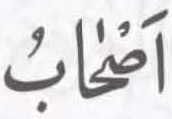 اَصْحٰابُ